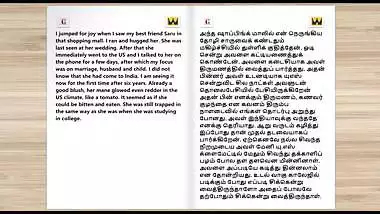 I jumped for joy when I saw my best friend Saru in
that shopping mall. I ran and hugged her. She was
last seen at her wedding. After that she
immediately went to the US and I talked to her on
the phone for a few days, after which my focus
was on marriage, husband and child. I did not
know that she had come to India. I am seeing it
now for the first time after six years. Already a
good blush, her mane glowed even redder in the
US climate, like a tomato. It seemed as if she
could be bitten and eaten. She was still trapped
in the same way as she was when she was studying
in college.
அந்த ஷாப்பிங் மாலில் என் நெருங்கிய
தோழி சாருவைக் கண்டதும்
மகிழ்ச்சியில் துள்ளிக் குதித்தேன். ஓடி
சென்று அவளை கட்டியணைத்துக்
கொண்டேன். அவளை கடைசியாக அவள்
திருமணத்தில் வைத்துப் பார்த்தது. அதன்
பின்னர் அவள் உடனடியாக யுஎஸ்
சென்றுவிட சில நாட்கள் அவளுடன்
தொலைபேசியில் பேசியிருக்கிறேன்
அதன் பின் எனக்கும் திருமணம், கணவர்
குழந்தை என கவனம் திரும்ப
நாளடைவில் எங்கள் தொடர்பு அறுந்து
போனது. அவள் இந்தியாவுக்கு வந்ததே
எனக்கு தெரியாது. ஆறு வருடம் கழித்து
இப்போது தான் முதல் தடவையாகப்
பார்க்கிறேன். ஏற்கெனவே நல்ல சிவந்த
நிறமுடைய அவள் மேனி யு எஸ்
க்ளைமேட்டில் மேலும் சிவந்து தக்காளிப்
பழம் போல தள தளவென மின்னினாள்.
அவளை அப்படியே கடித்து தின்னலாம்
என தோன்றியது. உடல் வாகு காலேஜில்
படிக்கும் போது எப்படி சிக்கென்று
வைத்திருந்தாளோ அதைப் போலவே
தற்போதும் சிக்கென்று வைத்திருந்தாள்.